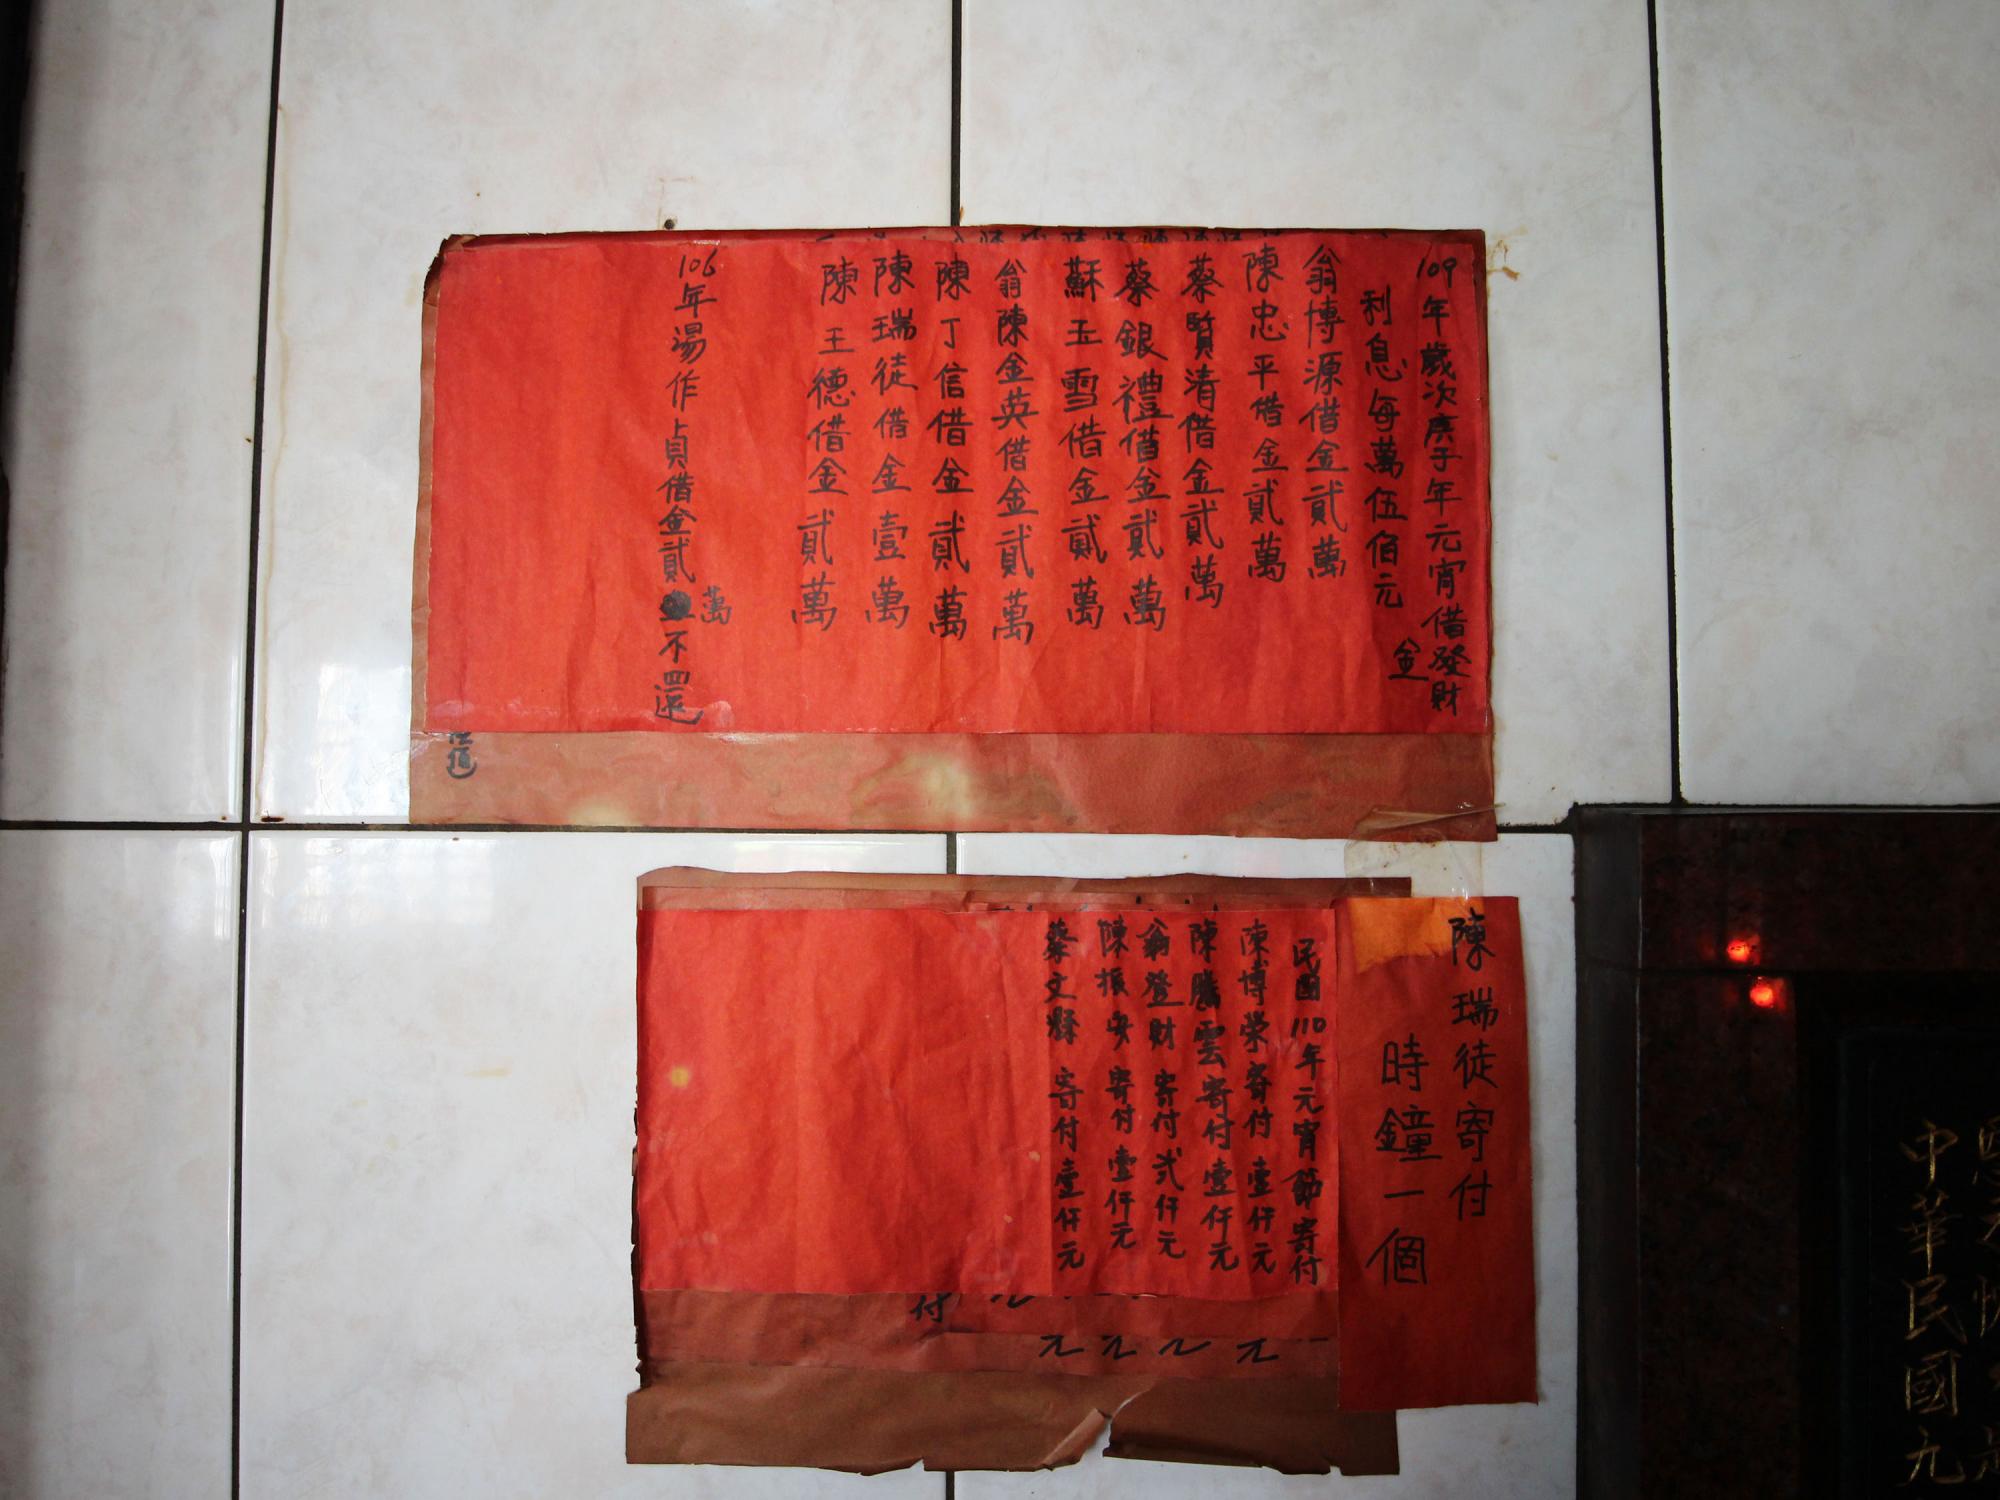 109年歲次庚子年元宵借發財
金
利息每萬伍佰元
翁博源借金貳萬
陳忠平借金貳萬
蔡賢清借金貳萬
蔡銀禮借金貳萬
蘇玉雪借金貳萬
翁陳金英借金貳萬
陳丁信借金貳萬
陳瑞徒借金壹萬
陳王德借金貳萬
106年湯作貞借金貳萬不還
陳瑞徒寄付
時鐘一個
民國110年元宵節寄付
陳博榮寄付壹仟元
陳騰雲寄付壹仟元
翁登財寄付弍仟元
陳振安寄付壹仟元
蔡文縣寄付壹仟元
付
元
元
元
元
中華民國九